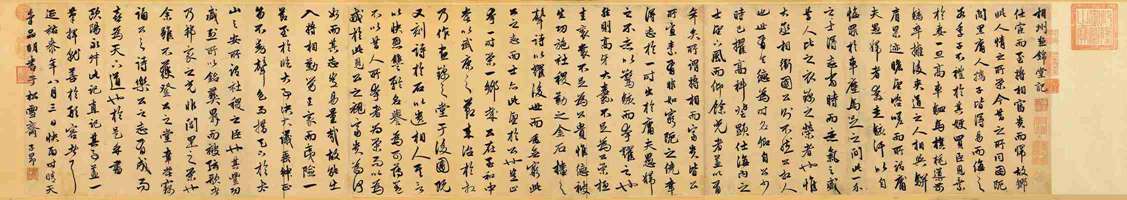 相州晝錦堂記
仕宦而至將相富貴而歸故鄉
此人情之所榮而今昔之所同也
閭里庸人孺子皆得易而侮之
若季子不禮於其嫂買臣見棄
於其妻一旦高車駟馬旗旄導前
騎卒擁後夾道之人相與駢
肩累迹瞻望咨嗟而所謂庸
夫愚婦者奔走駭汗以自
悔罪於車塵馬足之間此一介
之士得志當時而意氣之盛
昔人比之衣錦之榮者也惟
大丞相衛國公則不然公相人
也世有令德為時名卿自公少
時已擢高科登顯仕海內之
士聞下風而仰餘光者蓋亦有
年矣所謂將相而富貴皆公
所宜素有非如窮阨之人僥幸
得志於一時出於庸夫愚婦
之不意以驚駭而夸耀之也
然則高牙大纛不足為公榮桓
圭袞裳不足為公貴惟德被
生民功施社稷勒之金石播之
聲詩以耀後世而垂無窮此
公之志而士亦以此望於公也豈止
夸一時榮一鄉哉公在至和中
嘗以武康之節來治於相
乃作晝錦之堂于後圃既
又刻詩於石以遺相人其言
以快恩讎矜名譽為可薄蓋
不以昔人所夸者為榮而以為
戒於此見公之視富貴為何
如而其志豈易量哉故能出
入將相勤勞王家而夷險一
節至於臨大事決大議垂紳正
笏不動聲色而措天下於泰
山之安所謂社稷之臣也其豐功
盛烈所以銘彝鼎而被弦歌者
乃邦家之光非閭里之榮也
余雖不獲登公之堂幸嘗竊
誦公之詩樂公之志有成而
喜為天下道也於是乎書
歐陽永叔此記
八月三日
書于松雪齋子昂